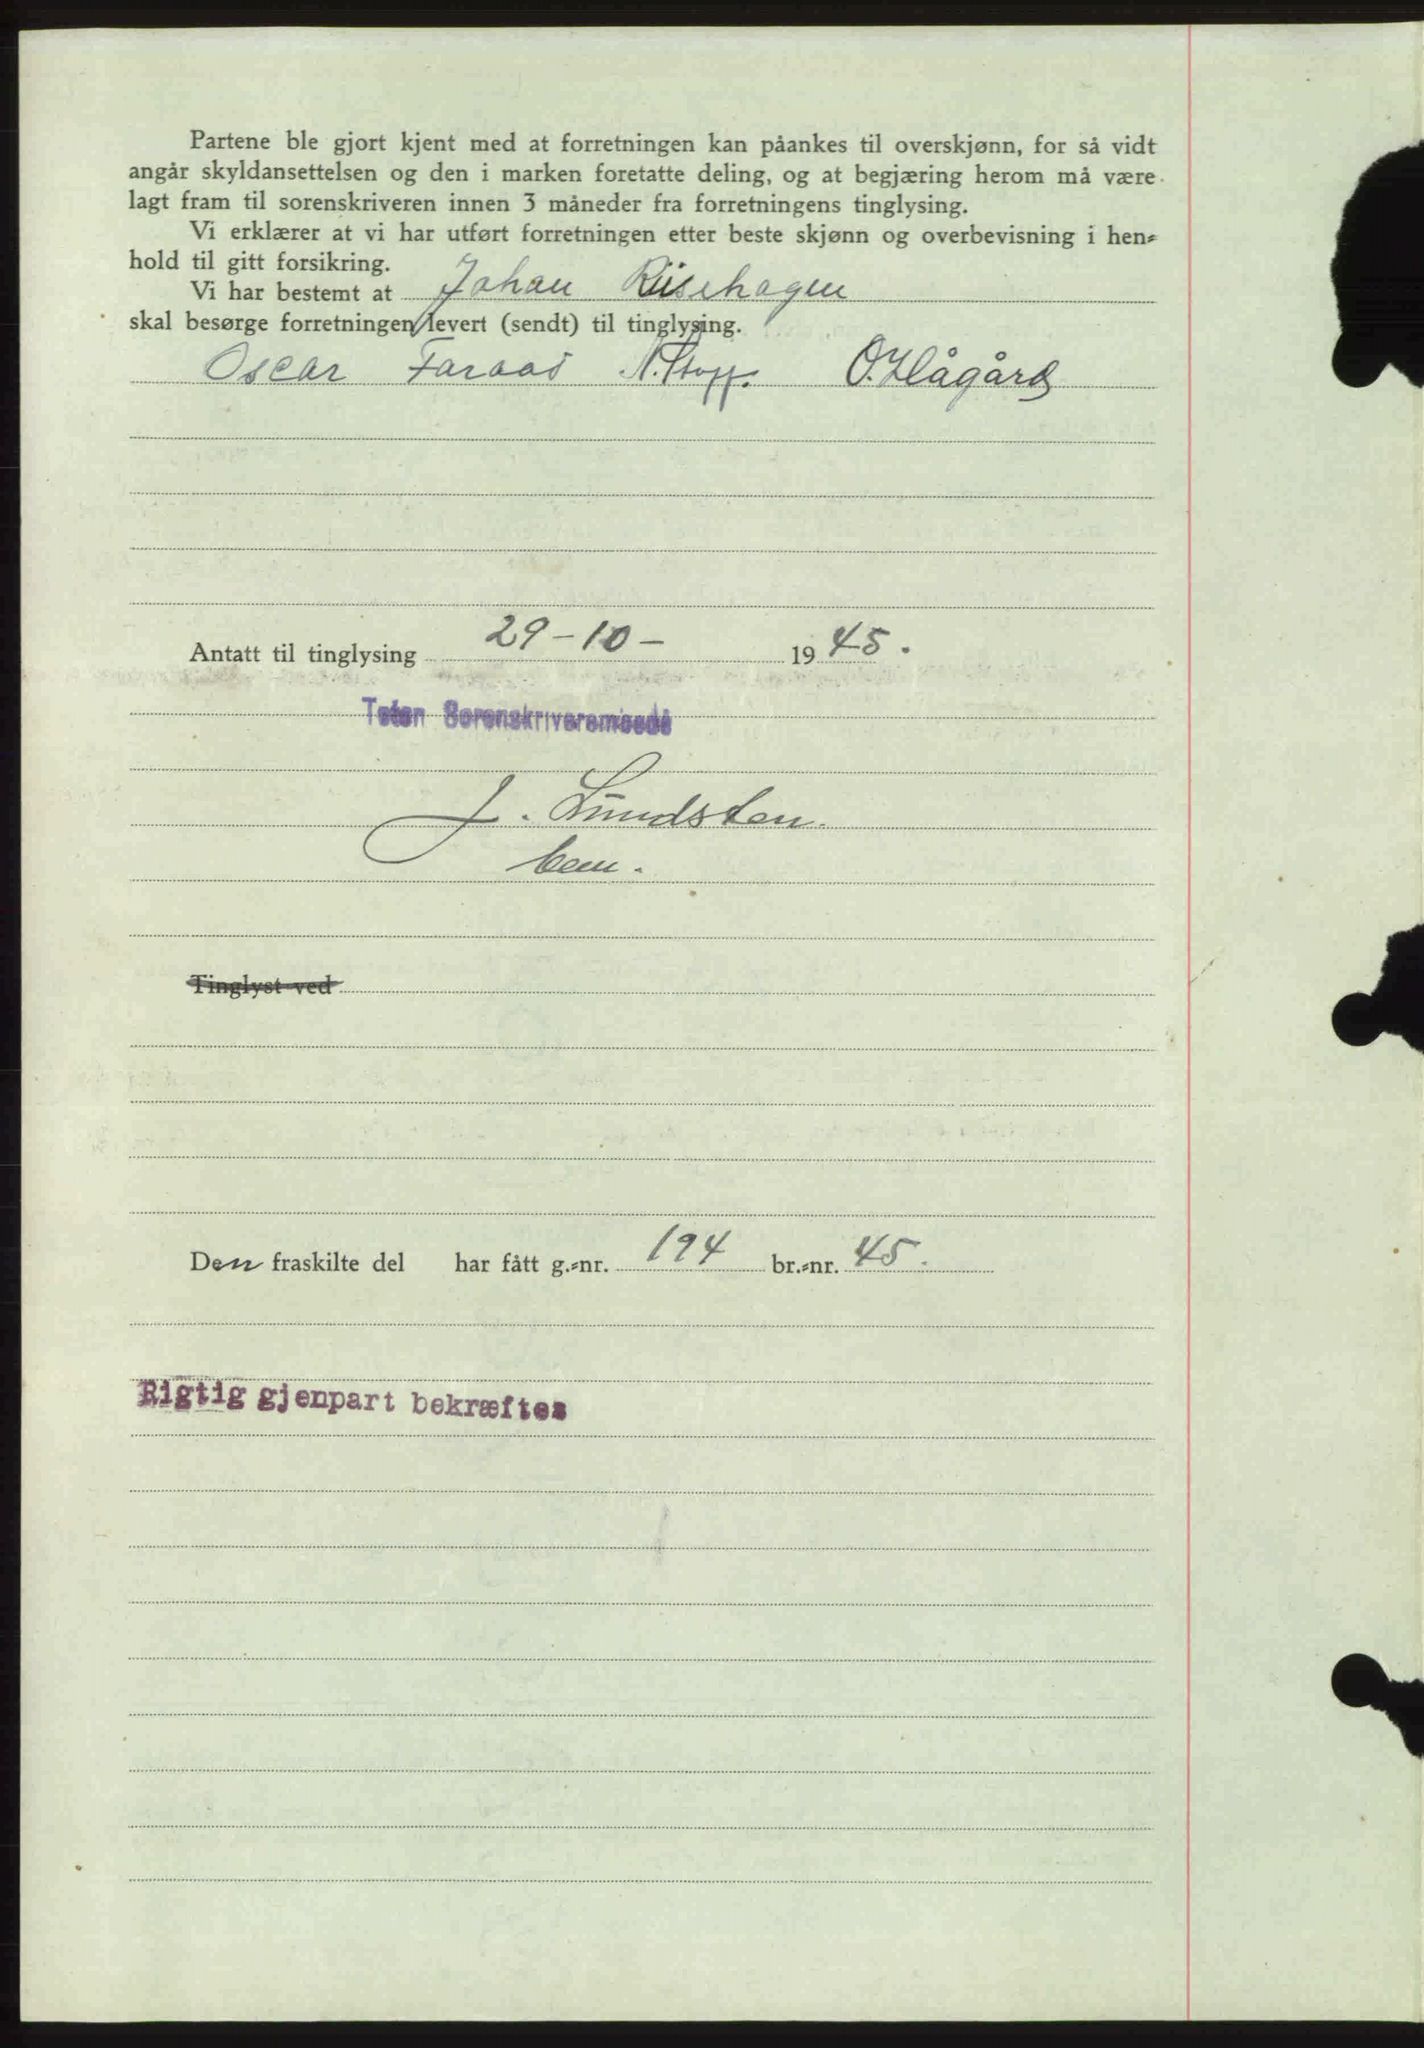 Partene ble gjort kjent med at forretningen kan påankes til overskjønn, for så vidt
angår skyldansettelsen og den i marken foretatte deling, og at begjæring herom må være
lagt fram til sorenskriveren innen 3 måneder fra forretningens tinglysing.
Vi erklærer at vi har utført forretningen etter beste skjønn og overbevisning i hen-
hold til gitt forsikring.
Vi har bestemt at Johan Riisehagen
skal besørge forretningen levert (sendt) til tinglysing.
Oscar Faraas O. Hågård
Antatt til tinglysing 29-10- 1945.
Toten Sorenskriverembede
J. Lundsten.
bem.
Tinglyst ved
Den fraskilte del har fått g.-nr. 194 br.-nr. 45.
Rigtig gjenpart bekræftes